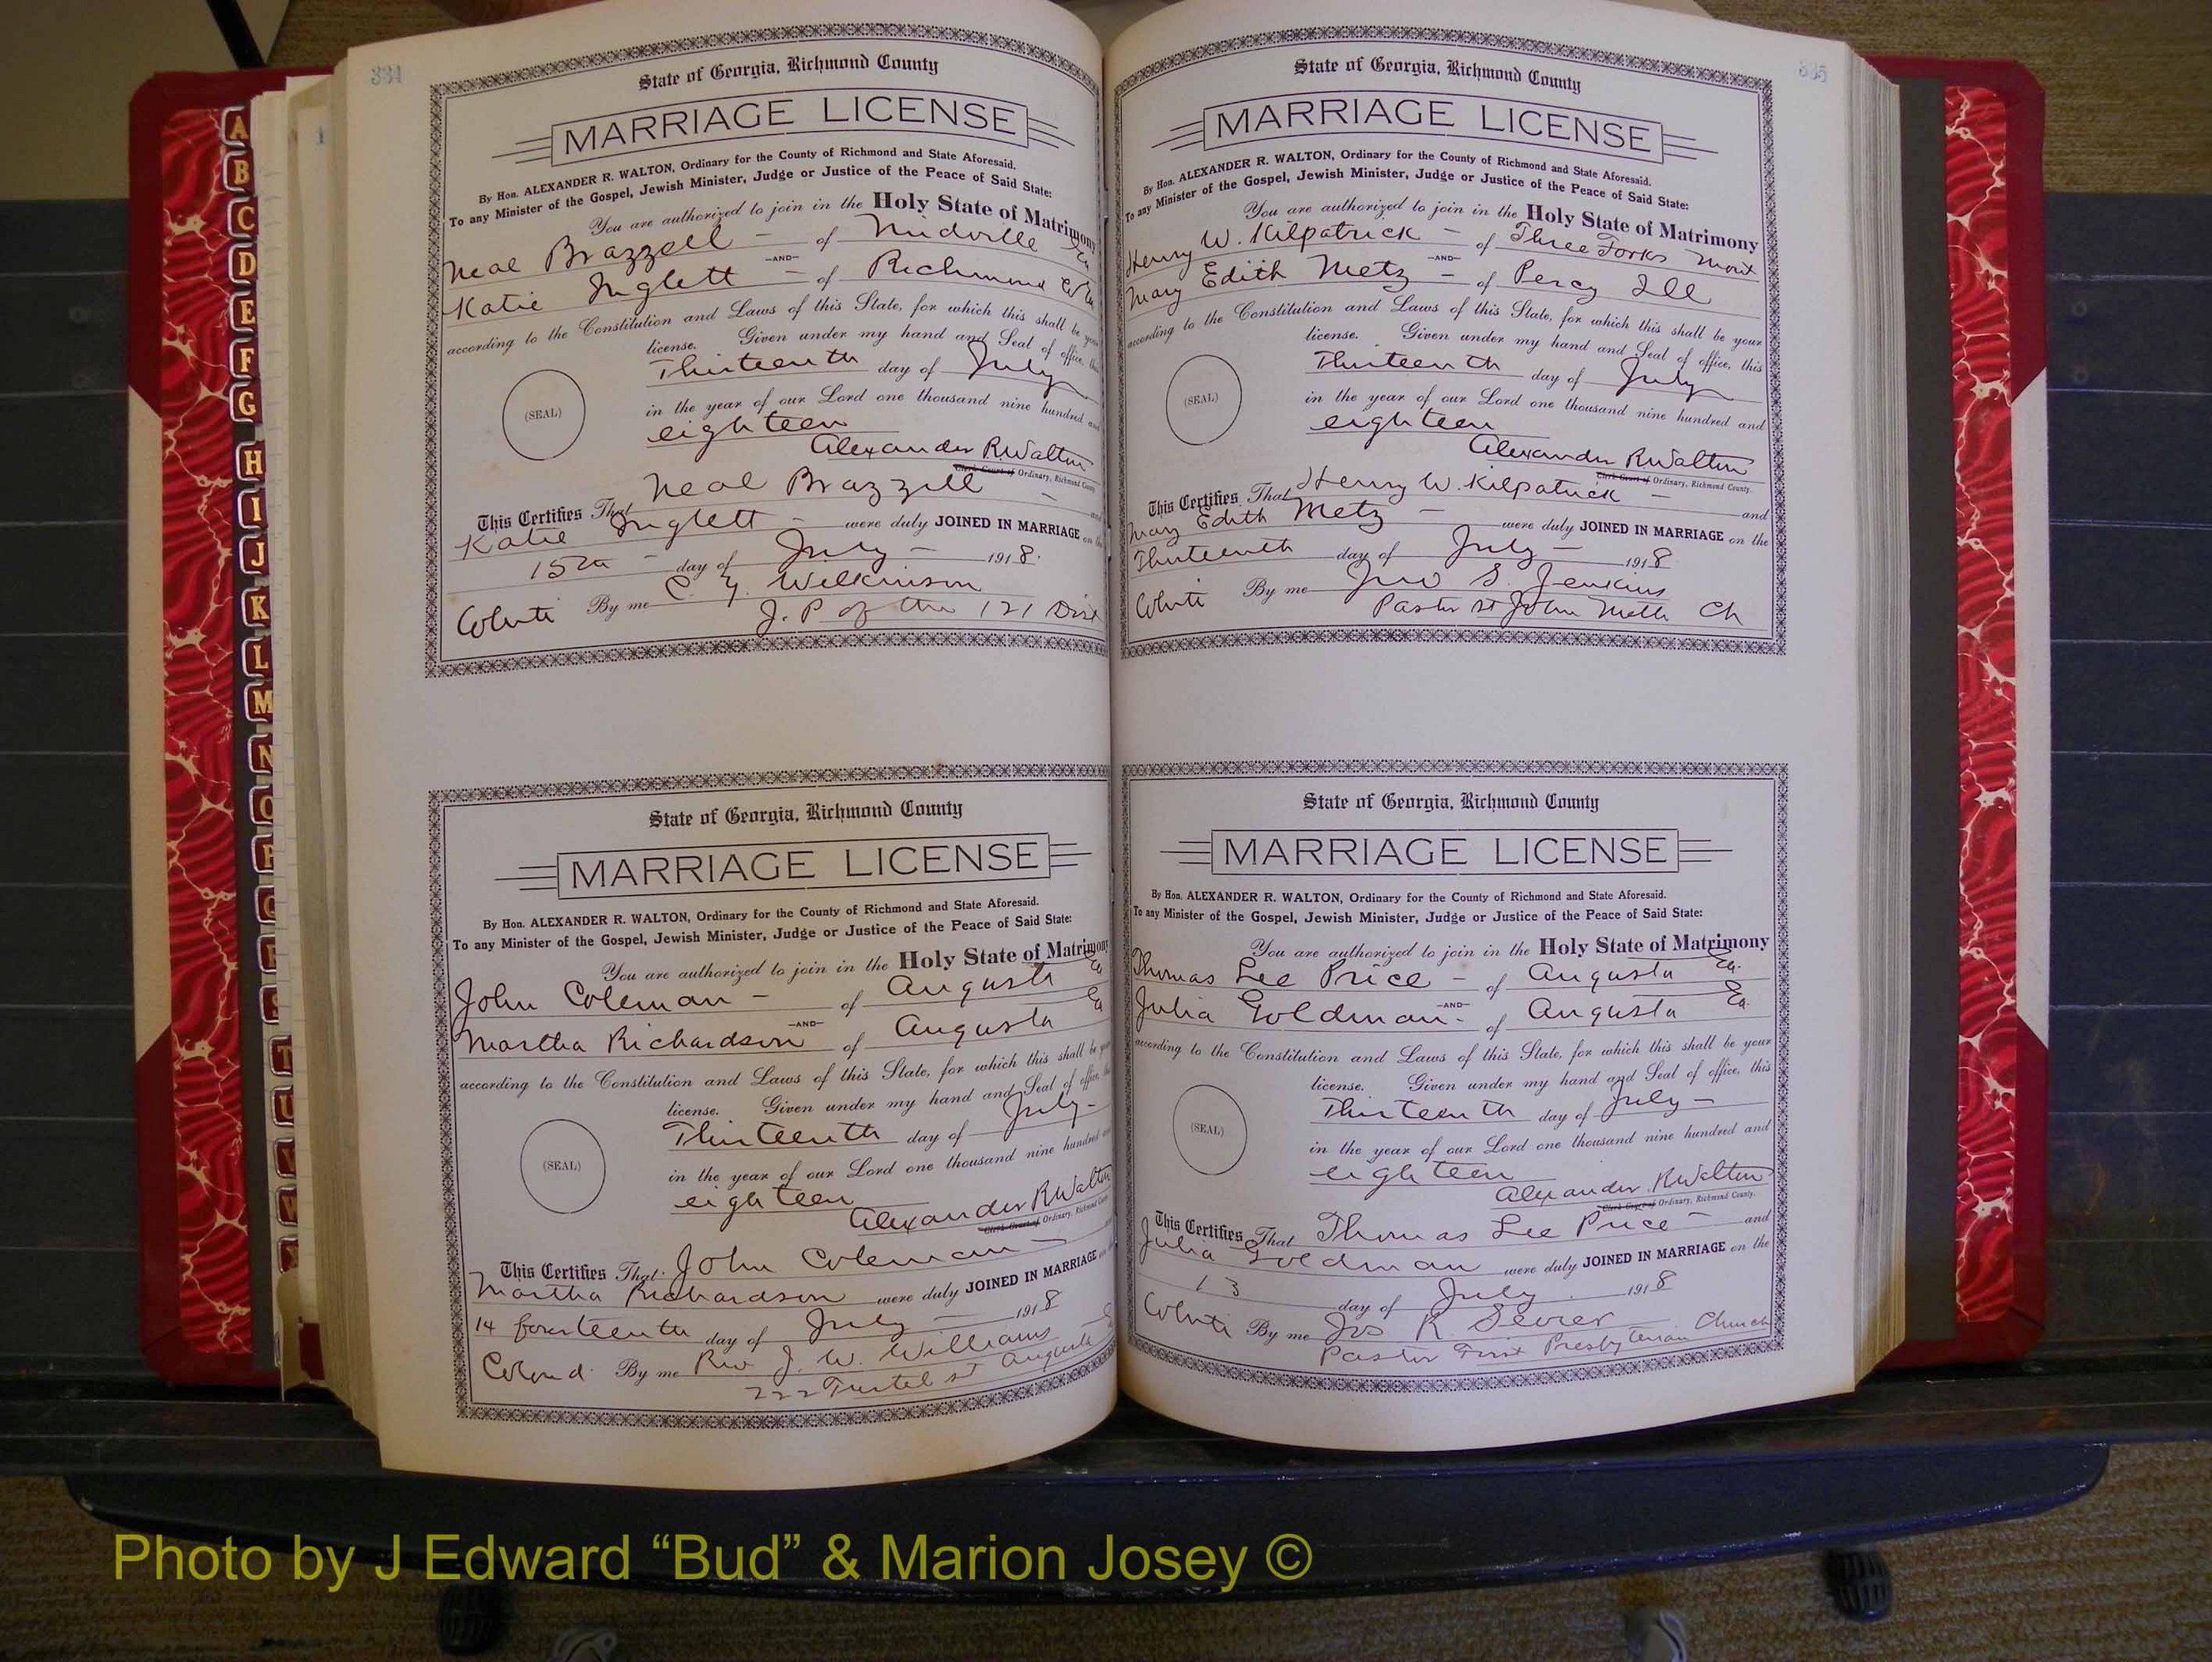 334
State of Georgia, Richmond County
MARRIAGE LICENSE
By Hon. ALEXANDER R. WALTON, Ordinary for the County of Richmond and State Aforesaid.
To any Minister of the Gospel, Jewish Minister, Judge or Justice of the Peace of Said State:
You are authorized to join in the Holy State of Matrimony
Neal Brazzell - of Midville Ga
-AND-
Katie Inglett - of Richmond Co Ga
according to the Constitution and Laws of this State, for which this shall be your
license. Given under my hand and Seal of office, this
Thirteenth day of July
(SEAL)
in the year of our Lord one thousand nine hundred and
eighteen
Alexander R Walton
Clerk Court of Ordinary, Richmond County
This Certifies That Neal Brazzell - and
Katie Inglett - were duly JOINED IN MARRIAGE on the
15th - day of July - 1918.
White By me C. Y. Wilkinson
J. P of the 121 Dist
State of Georgia, Richmond County
MARRIAGE LICENSE
By Hon. ALEXANDER R. WALTON, Ordinary for the County of Richmond and State Aforesaid.
To any Minister of the Gospel, Jewish Minister, Judge or Justice of the Peace of Said State:
You are authorized to join in the Holy State of Matrimony
John Coleman - of Augusta Ga
-AND-
Martha Richardson of Augusta Ga
according to the Constitution and Laws of this State, for which this shall be your
license. Given under my hand and Seal of office, this
Thirteenth day of July-
(SEAL)
in the year of our Lord one thousand nine hundred and
eighteen
Alexander R Walton
Clerk Court of Ordinary, Richmond County
This Certifies That John Coleman -
Martha Richardson were duly JOINED IN MARRIAGE on the
14 fourteenth day of July - 1918
Colord By me Rev J. W. Williams
222 st Augusta Ga
335
State of Georgia, Richmond County
MARRIAGE LICENSE
By Hon. ALEXANDER R. WALTON, Ordinary for the County of Richmond and State Aforesaid.
To any Minister of the Gospel, Jewish Minister, Judge or Justice of the Peace of Said State:
You are authorized to join in the Holy State of Matrimony
Henry W. Kilpatrick - of Three Forks Mont
-AND-
Mary Edith Metz - of Percy Ill
according to the Constitution and Laws of this State, for which this shall be your
license. Given under my hand and Seal of office, this
Thirteenth day of July
(SEAL)
in the year of our Lord one thousand nine hundred and
eighteen
Alexander R Walton
Clerk Court of Ordinary, Richmond County.
This Certifies That Henry W. Kilpatrick - and
Mary Edith Metz - were duly JOINED IN MARRIAGE on the
Thirteenth day of July - 1918
White By me Jno S. Jenkins
Pastor St John Meth Ch
State of Georgia, Richmond County
MARRIAGE LICENSE
By Hon. ALEXANDER R. WALTON, Ordinary for the County of Richmond and State Aforesaid.
To any Minister of the Gospel, Jewish Minister, Judge or Justice of the Peace of Said State:
You are authorized to join in the Holy State of Matrimony
Thomas Lee Price - of Augusta Ga.
-AND-
Julia Goldman - of Augusta Ga.
according to the Constitution and Laws of this State, for which this shall be your
license. Given under my hand and Seal of office, this
Thirteenth day of July -
(SEAL)
in the year of our Lord one thousand nine hundred and
eighteen
Alexander R Walton
Clerk Court of Ordinary, Richmond County.
This Certifies That Thomas Lee Price - and
Julia Goldman were duly JOINED IN MARRIAGE on the
13 day of July 1918
White By me Jos R. Sevier
Pastor First Presbyterian Church
A
B
C
D
E
F
G
H
I
J
K
L
M
N
O
P
Q
R
S
T
U
V
W
Photo by J Edward “Bud” & Marion Josey ©